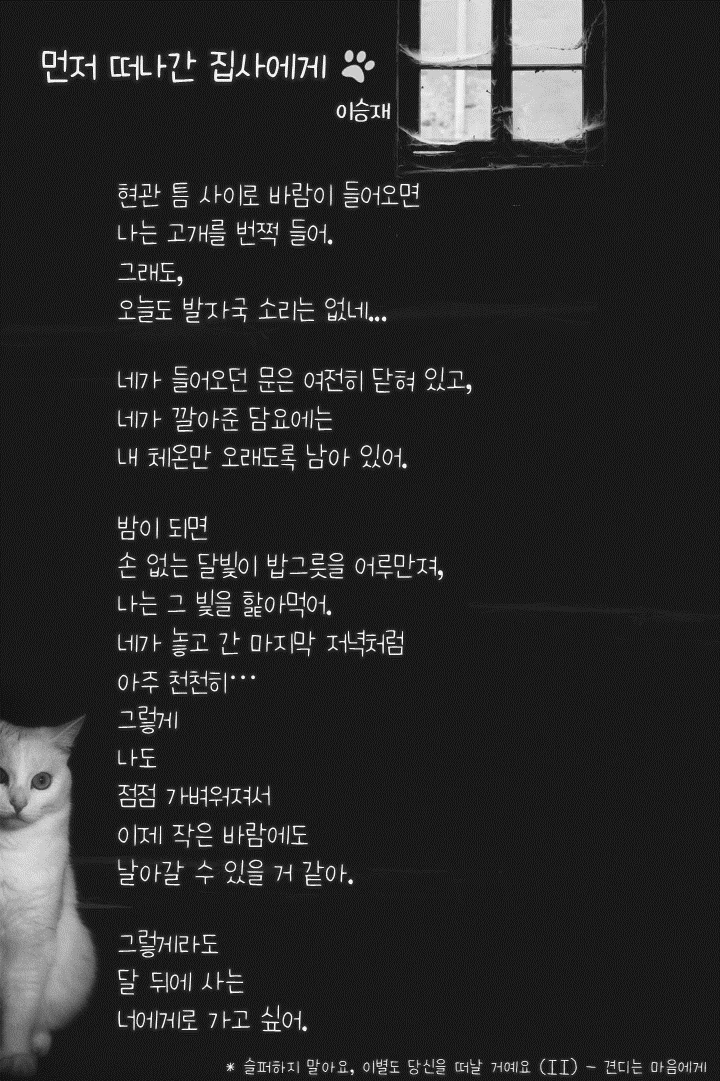 먼저 떠나간 집사에게 🐾
이승재
현관 틈 사이로 바람이 들어오면
나는 고개를 번쩍 들어.
그래도,
오늘도 발자국 소리는 없네...
네가 들어오던 문은 여전히 닫혀 있고,
네가 깔아준 담요에는
내 체온만 오래도록 남아 있어.
밤이 되면
손 없는 달빛이 밥그릇을 어루만져,
나는 그 빛을 핥아먹어.
네가 놓고 간 마지막 저녁처럼
아주 천천히…
그렇게
나도
점점 가벼워져서
이제 작은 바람에도
날아갈 수 있을 거 같아.
그렇게라도
달 뒤에 사는
너에게로 가고 싶어.
* 슬퍼하지 말아요, 이별도 당신을 떠날 거예요 (II) - 견디는 마음에게